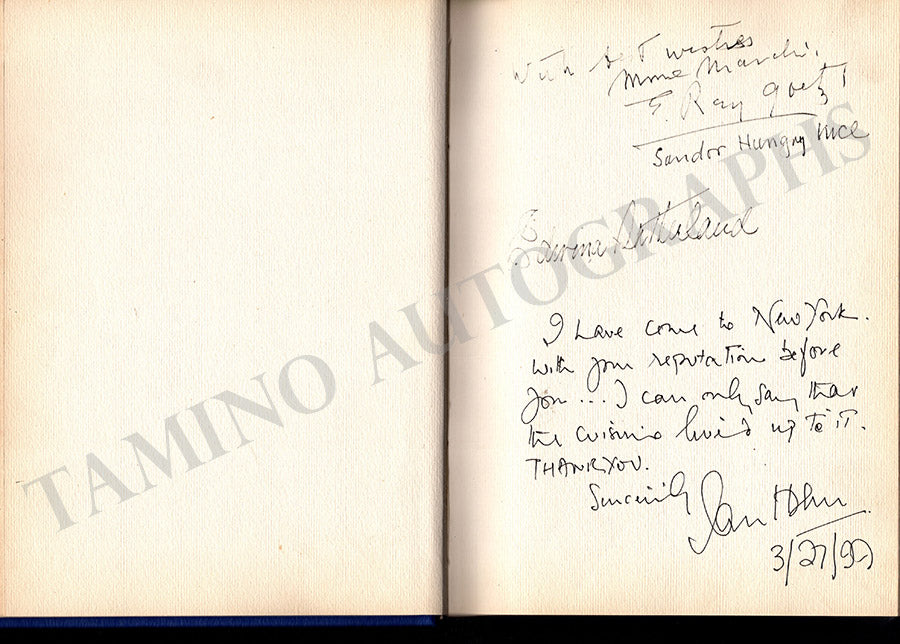 With best wishes
Mme Marchi.
E. Ray Goetz!
Sandor Hungry Nice
Sutherland
I have come to New York.
with your reputation before
you... I can only say that
the cuisine lived up to it.
THANKYOU.
Sincerely Ian Holm
3/27/97
TAMINO AUTOGRAPHS